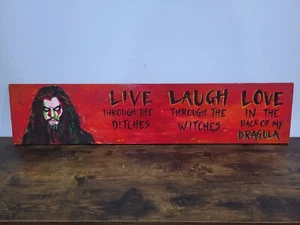 LIVE
THROUGH THE
DITCHES
LAUGH
THROUGH THE
WITCHES
LOVE
IN THE
BACK OF MY
DRAGULA